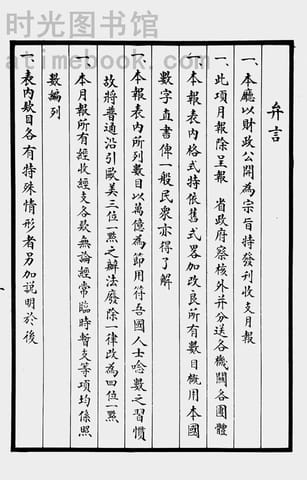 时光图书馆
atimebook.com
弁言
一、本廳以財政公開為宗旨特發刊收支月報
一、此項月報除呈報 省政府察核外并分送各機關各團體
一、本報表內格式特依舊式畧加改良所有數目概用本國
數字直書俾一般民衆亦得了解
一、本報表內所列數目以萬億為節用符吾國人士唸數之習慣
故將普通沿引歐美三位一㸃之辦法廢除一律改為四位一㸃
本月報所有經收經支各欵無論經常臨時暫支等項均係照
數編列
一、表內欵目各有特殊情形者另加説明於後